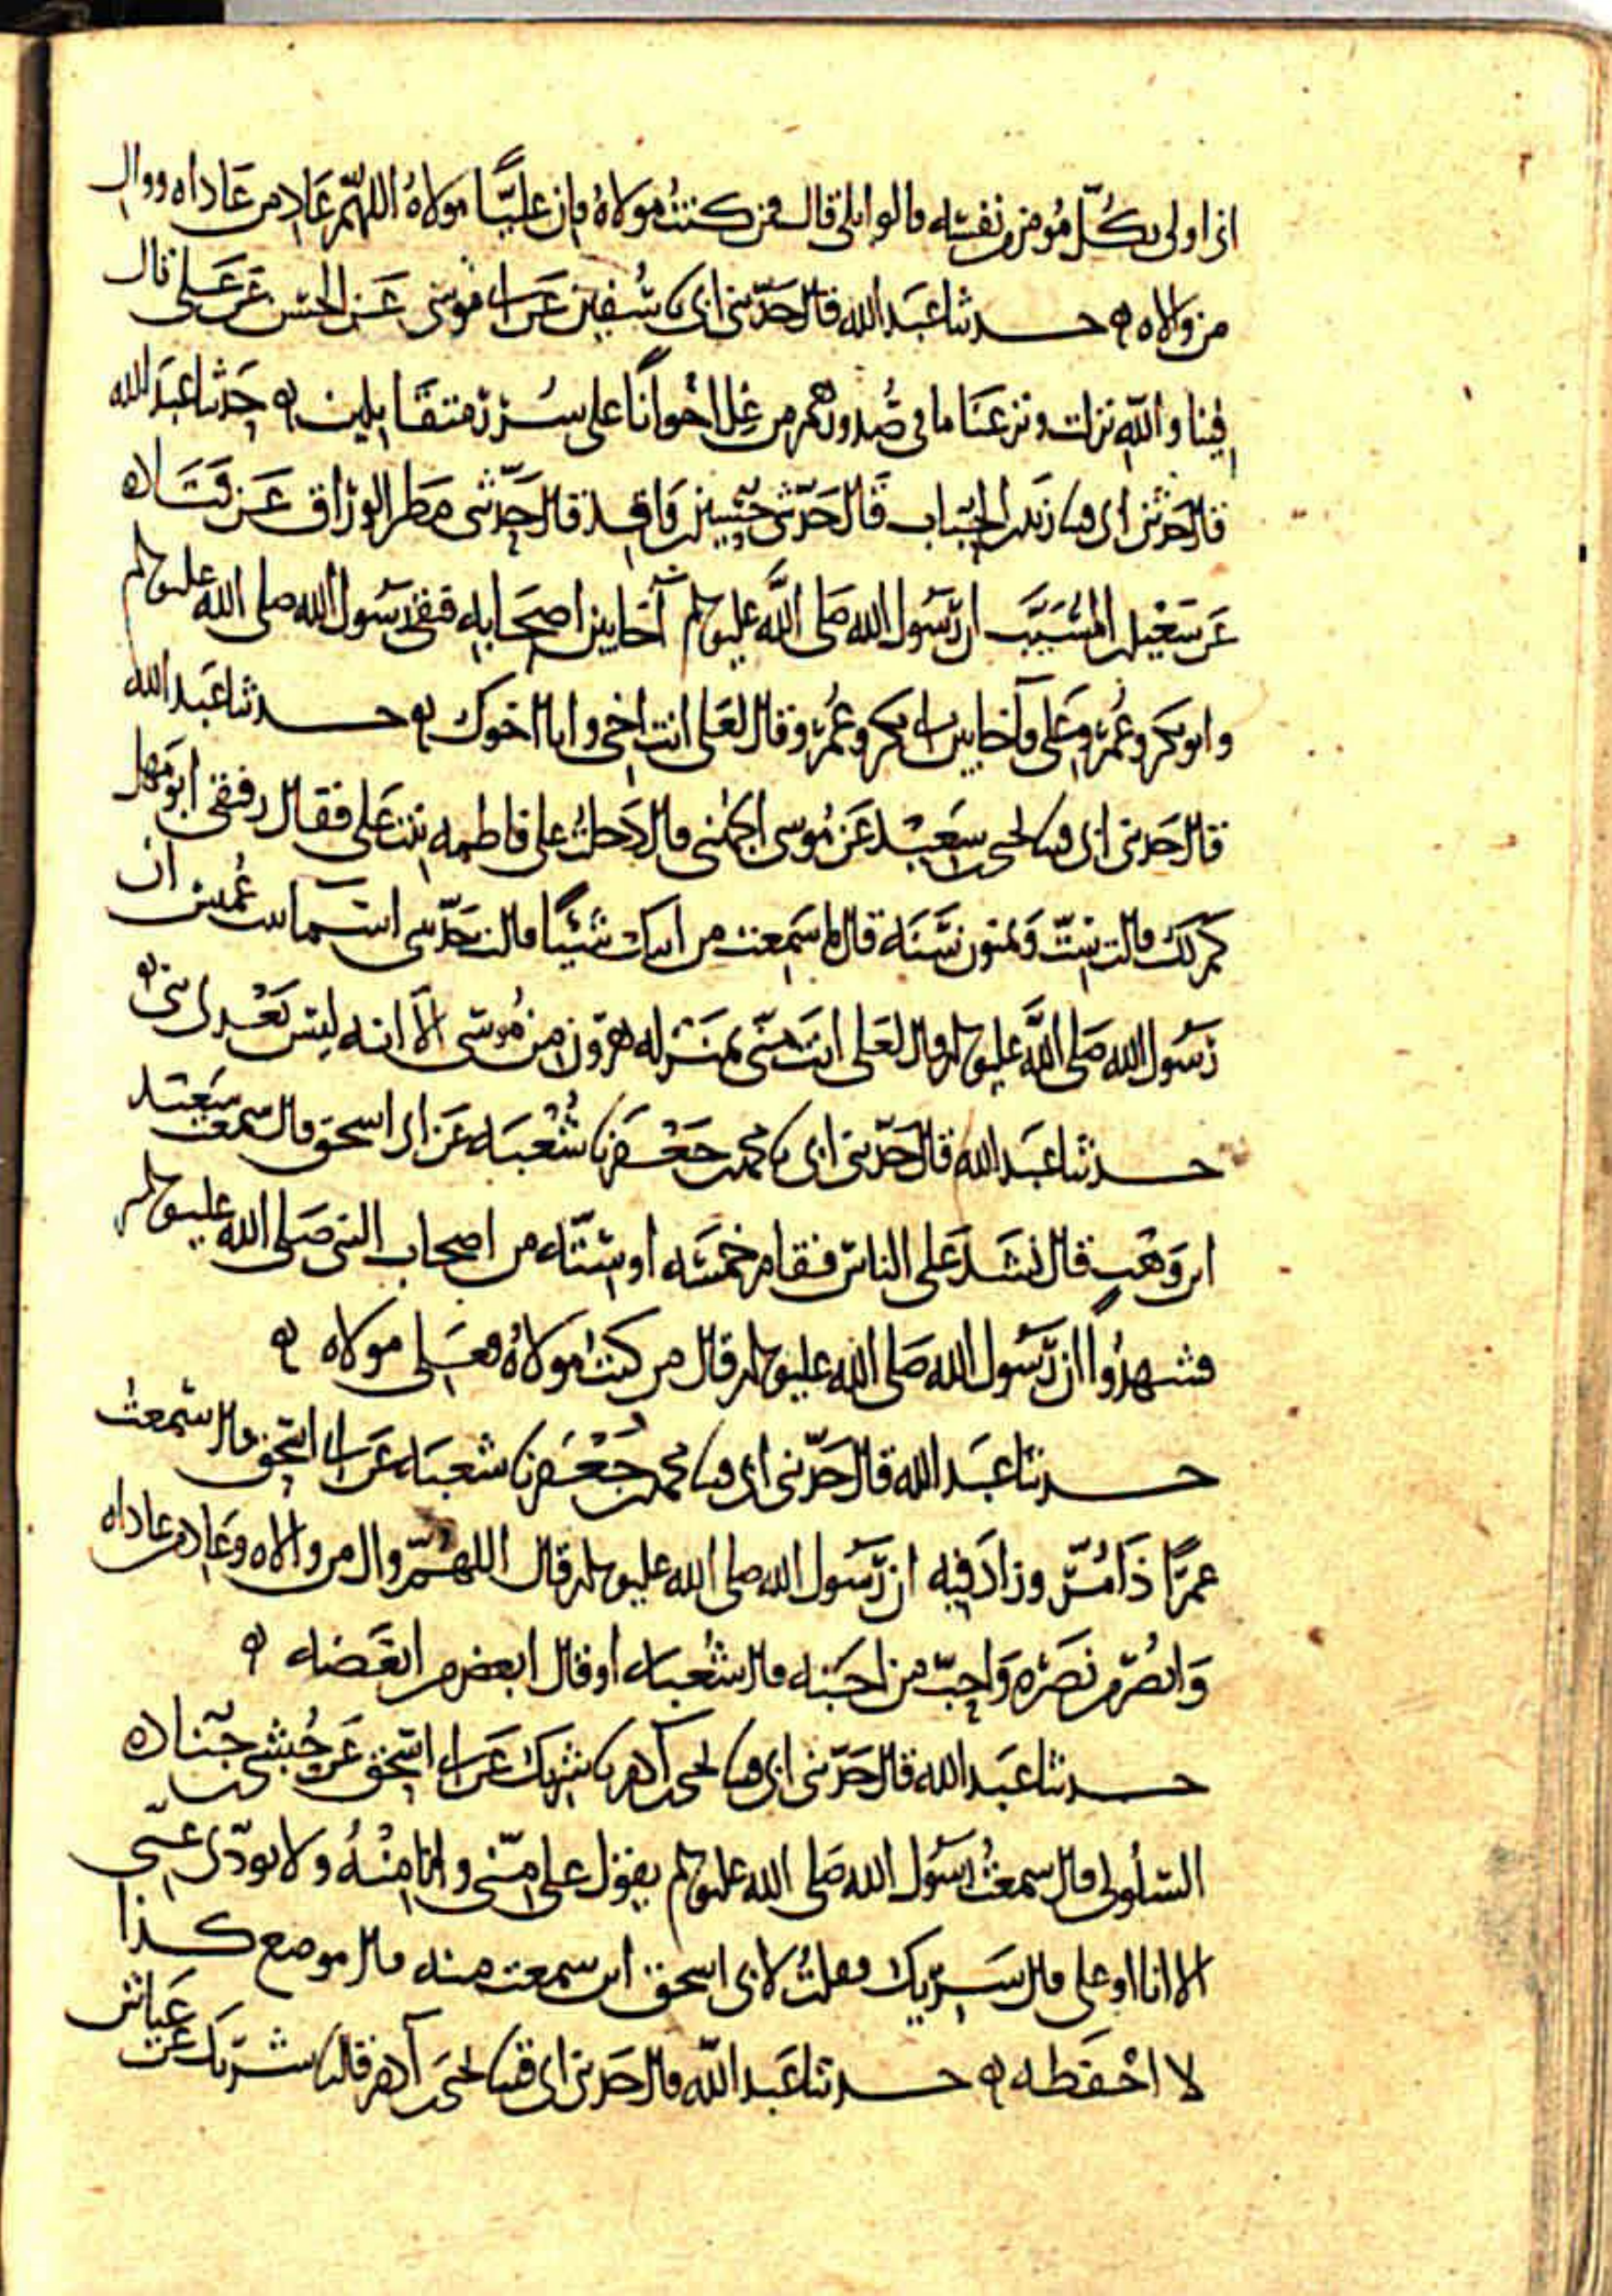 اني اولى بكل مؤمن من نفسه قالوا بلى قال فمن كنت مولاه فإن عليًّا مولاه اللهم عاد من عاداه ووال
من والاه ه حدثنا عبد الله قال حدثني ابي نا سفين عن ابي موسى عن الحسن عن علي قال
فينا والله نزلت ونزعنا ما في صدورهم من غل اخوانًا على سرر متقابلين ه حدثنا عبد الله
قال حدثني ابي قثنا زيد بن الحباب قال حدثني حسين بن واقد قال حدثني مطر الوراق عن قتاده
عن سعيد بن المسيب ان رسول الله صلى الله عليه وسلم آخا بين اصحابه فبقي رسول الله صلى الله عليه وسلم
وابو بكر وعمر وعلي فآخا بين ابي بكر وعمر وقال لعلي انت اخي وانا اخوك ه حدثنا عبد الله
قال حدثني ابي قثنا يحيى بن سعيد عن موسى الجهني قال دخلت على فاطمه بنت علي فقال رفيقي ابو مهل
كم لك قالت ستة وثمنون سنه قال ما سمعت من ابيك شيئًا قالت حدثتني اسماء بنت عميس ان
رسول الله صلى الله عليه وسلم قال لعلي انت مني بمنزله هرون من موسى الا انه ليس بعدي نبي ه
حدثنا عبد الله قال حدثني ابي نا محمد بن جعفر نا شعبه عن ابي اسحق قال سمعت سعيد
ابن وهب قال نشد علي الناس فقام خمسه او سته من اصحاب النبي صلى الله عليه وسلم
فشهدوا ان رسول الله صلى الله عليه وسلم قال من كنت مولاه فعلي مولاه ه
حدثنا عبد الله قال حدثني ابي قثنا محمد بن جعفر نا شعبه عن ابي اسحق قال سمعت
عمرًا ذا مر وزاد فيه ان رسول الله صلى الله عليه وسلم قال اللهم وال من والاه وعاد من عاداه
وانصر من نصره واحب من احبه قال شعبه او قال ابغض من ابغضه ه
حدثنا عبد الله قال حدثني ابي قثنا يحيى بن آدم نا شريك عن ابي اسحق عن حبشي بن جناده
السلولي قال سمعت رسول الله صلى الله عليه وسلم يقول علي مني وانا منه ولا يودي عني
الا انا او علي قال شريك فقلت لابي اسحق اين سمعت منه قال موضع كذا
لا احفظه ه حدثنا عبد الله قال حدثني ابي قثنا يحيى بن آدم قال نا شريك عن عياش